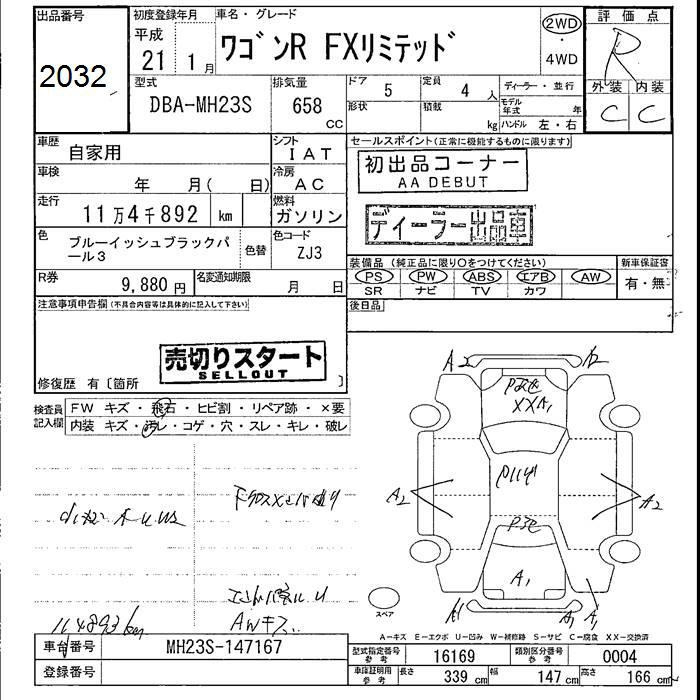 出品番号
2032
初度登録年月
平成
21 1月
車名・グレード
ワゴンR FXリミテッド
2WD
・
4WD
評価点
R
外装 内装
C C
型式
DBA-MH23S
排気量
658
CC
ドア 5
定員 4 人
形状
積載 kg
ディーラー・並行
モデル年式 年
ハンドル 左・右
車歴 自家用
シフト IAT
車検 年 月( 日)
冷房 AC
走行 11万4千892 km
燃料 ガソリン
色 ブルーイッシュブラックパール3
色替
色コード ZJ3
R券 9,880 円
名変通知期限 月 日
セールスポイント(正常に機能するものに限ります)
初出品コーナー
AA DEBUT
ディーラー出品車
装備品(純正品に限り○をつけてください)
新車保証書
PS PW ABS エアB AW
有・無
SR ナビ TV カワ
後日品
注意事項申告欄(不具合内容等は具体的に記入して下さい)
売切りスタート
SELLOUT
修復歴 有〔箇所 〕
検査員記入欄
FW キズ・飛石・ヒビ割・リペア跡・×要
内装 キズ・汚レ・コゲ・穴・スレ・キレ・破レ
A2
XXA1
A2 A2
A1
A1
AWキズ
114893km
スペア
A=キズ E=エクボ U=凹み W=補修跡 S=サビ C=腐食 XX=交換済
車台番号 MH23S-147167
登録番号
型式指定番号 参考 16169
類別区分番号 参考 0004
車庫証明用 参考 長さ 339 cm 幅 147 cm 高さ 166 cm